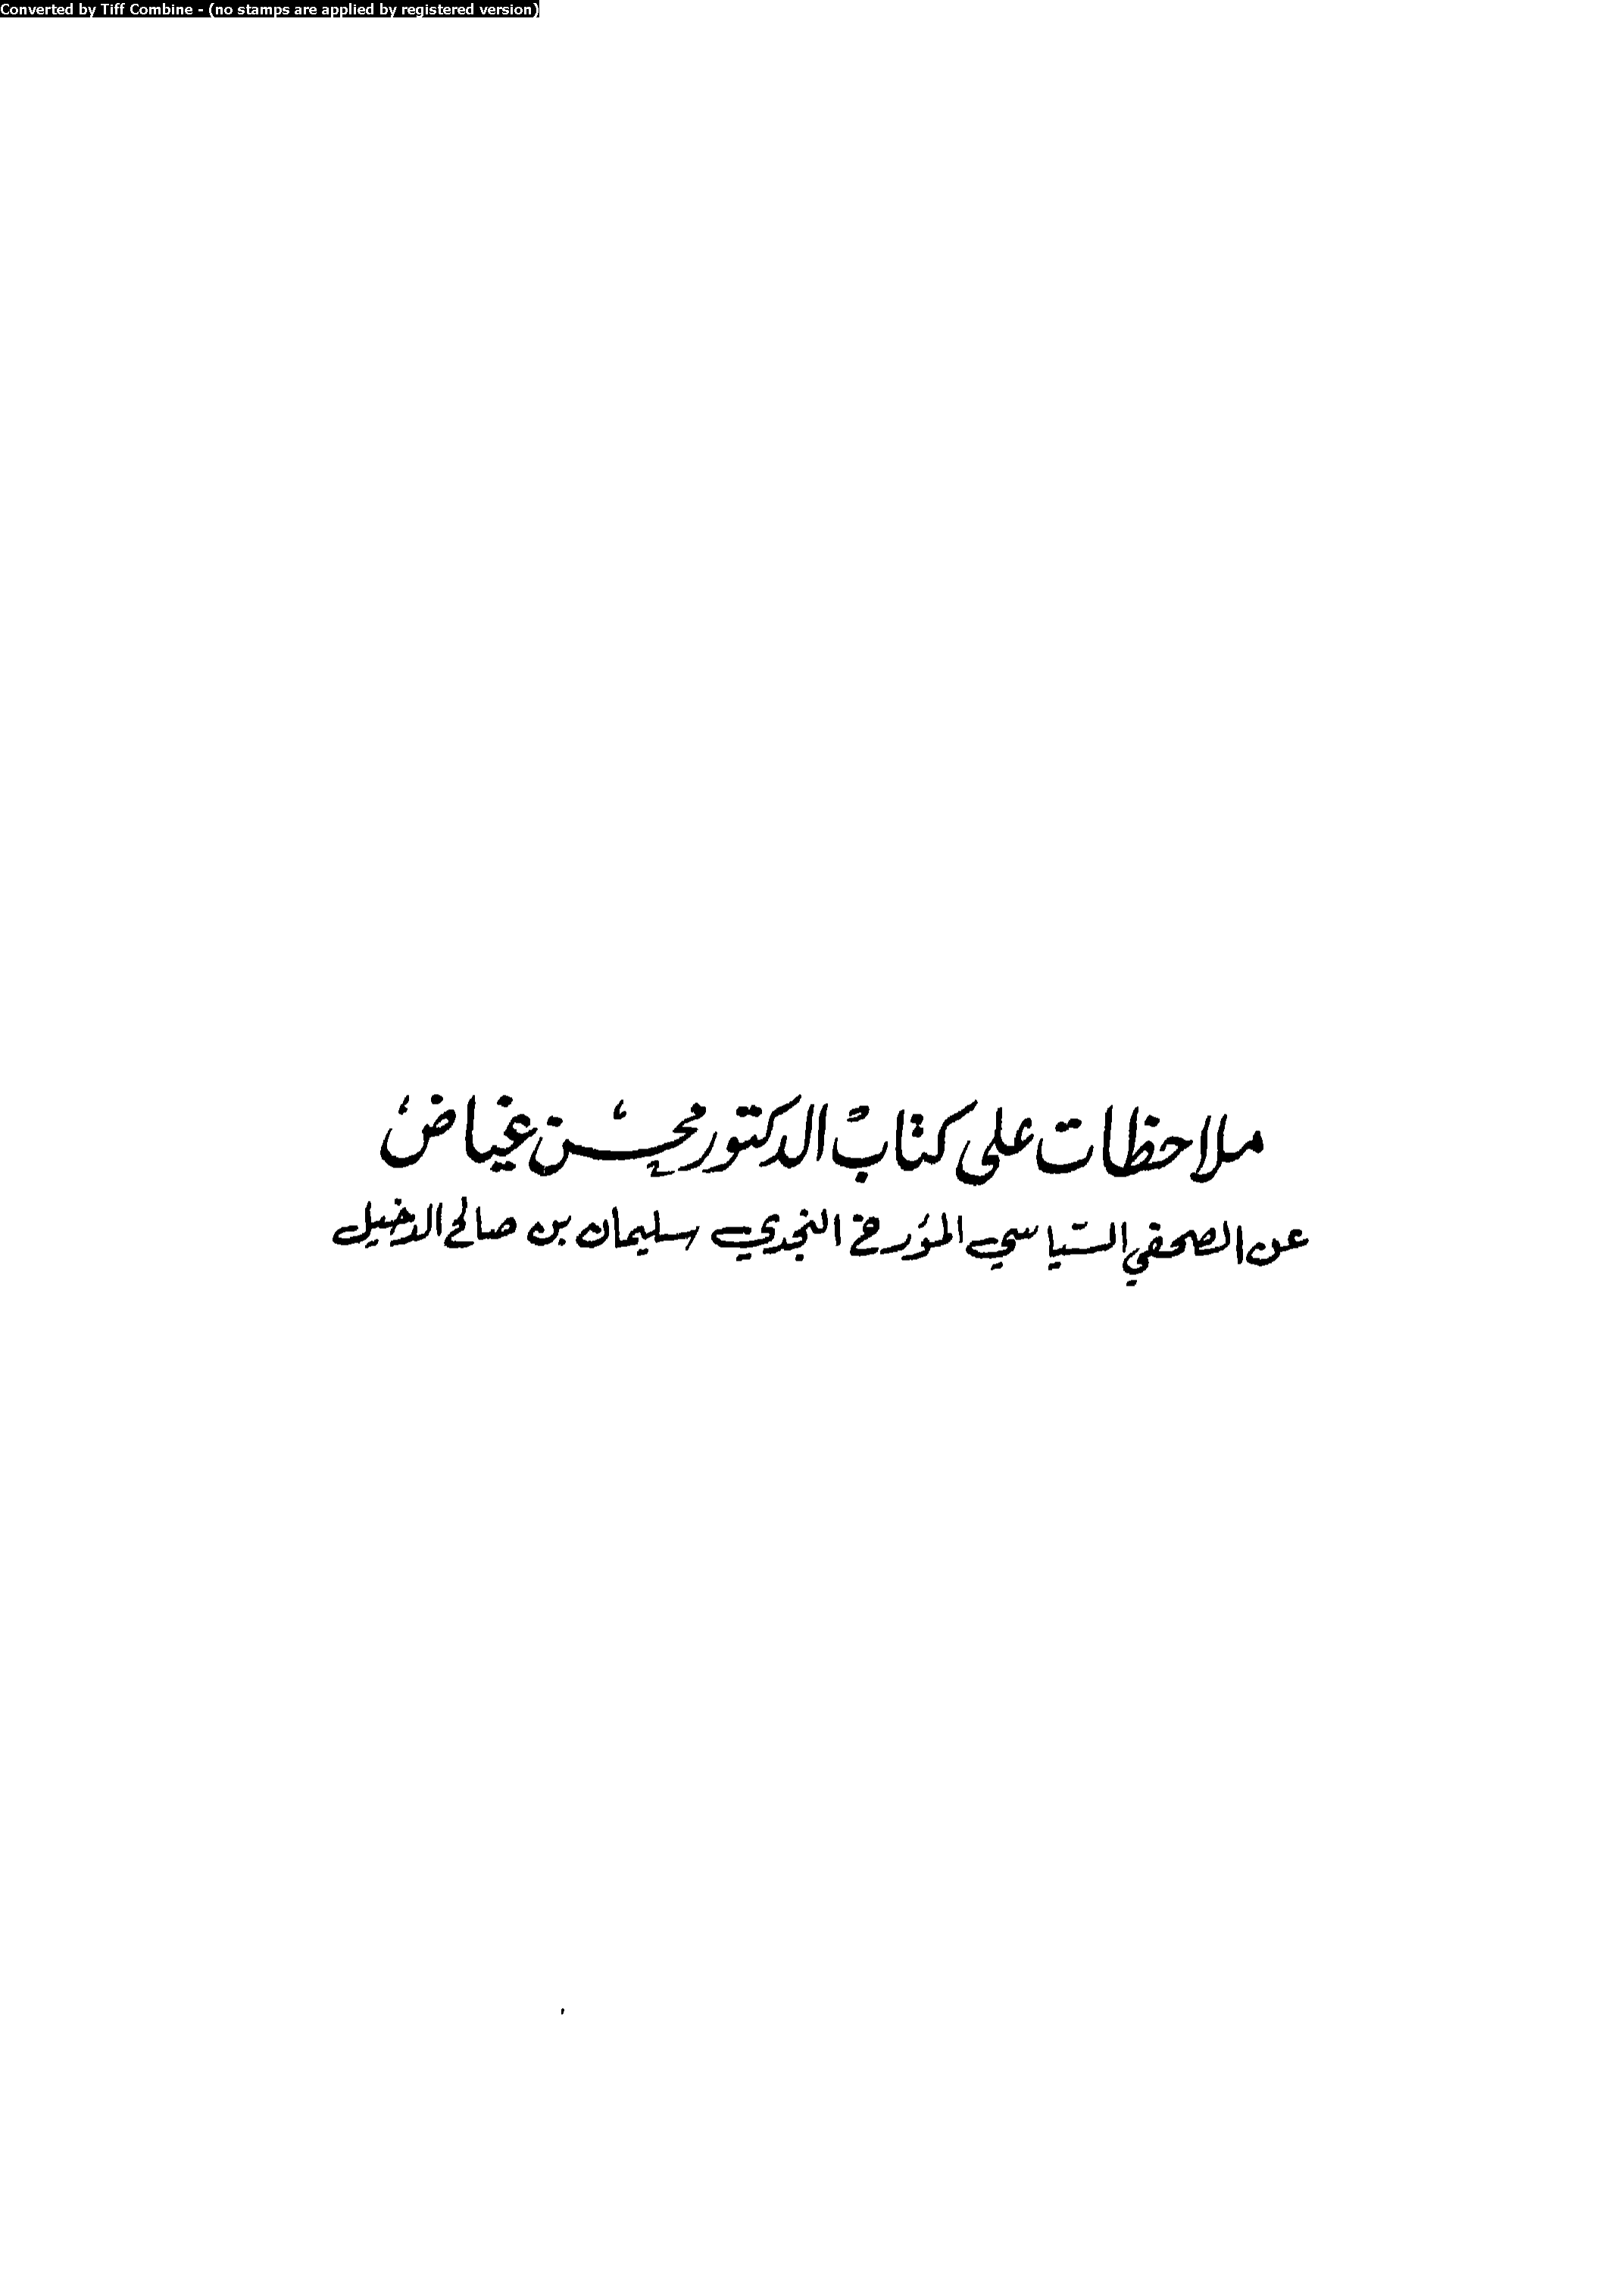 Converted by Tiff Combine - (no stamps are applied by registered version)
ملاحظات على كتاب الدكتور محسن غياض
عن الصحفي السياسي المؤرخ النجدي سليمان بن صالح الدخيل